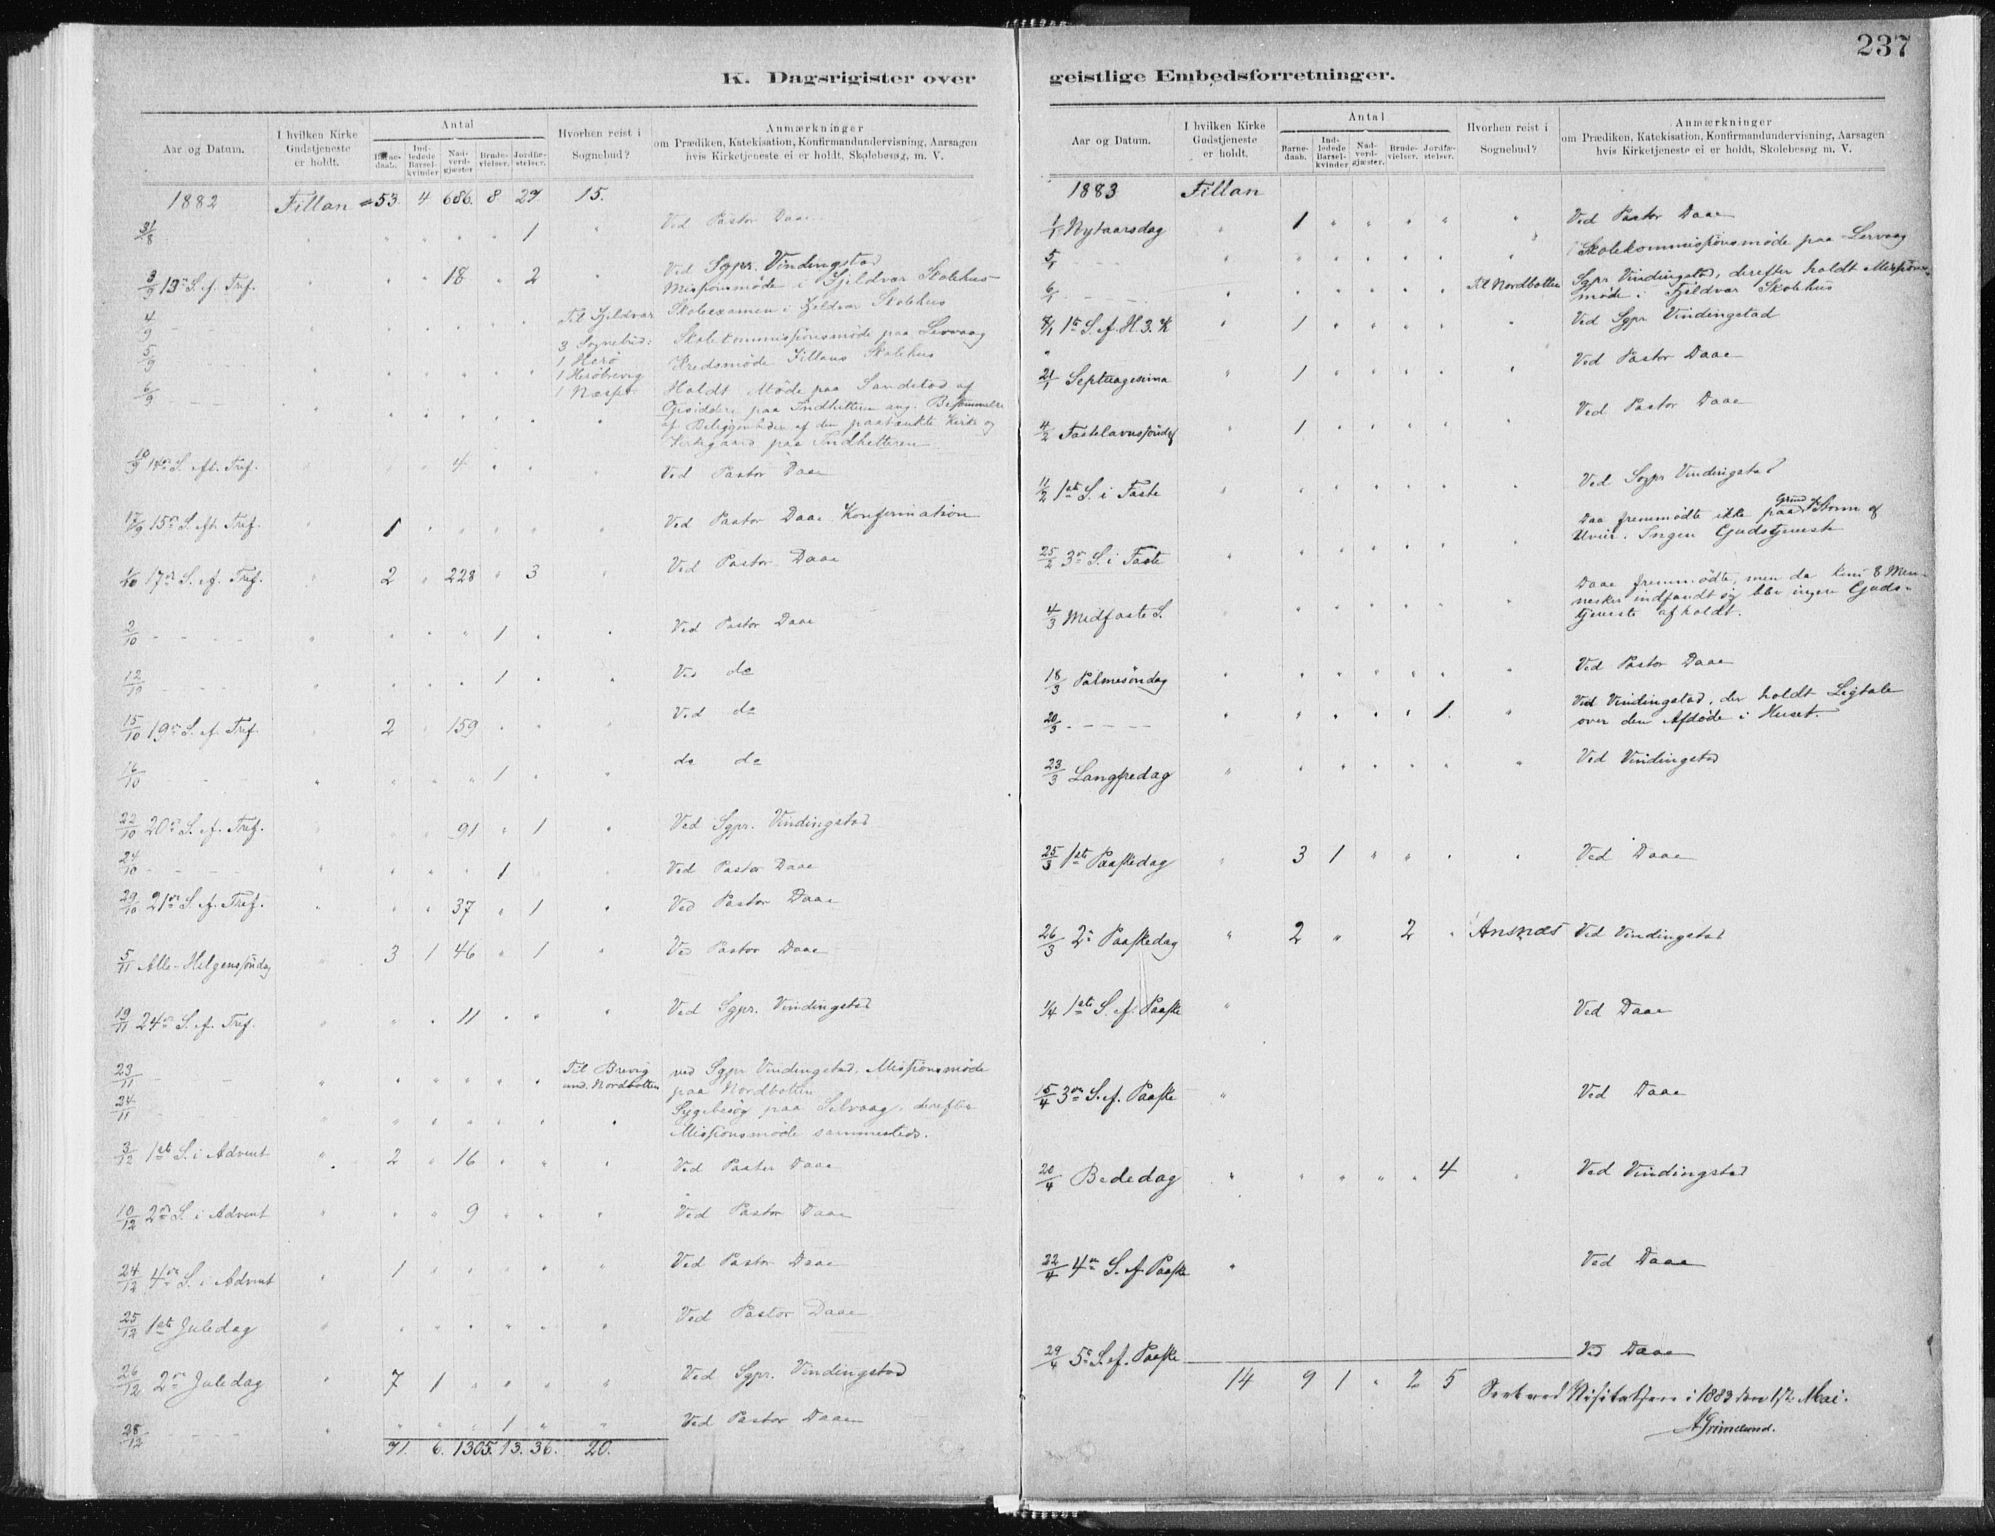 237
K. Dagsrigister over
Aar og Datum. I hvilken Kirke Gudstjeneste er holdt. Antal Barne-daab. Ind-ledede Barsel-kvinder Nad-verd-gjæster Brude-vielser. Jordfæ-stelser. Hvorhen reist i Sognebud? Anmærkninger om Prædiken, Katekisation, Konfirmandundervisning, Aarsagen hvis Kirketjeneste ei er holdt, Skolebesøg, m. V.
1882 Fillan 53. 4 686. 8 27. 15.
31/8 " " " " " 1 " Ved Pastor Daae
3/9 13de S. ef. Tref. " " " 18 " 2 " Ved Sgpr. Vindingstad
Missionsmøde i Fjeldvær Skolehus
4/9 - - - " " " " " " Til Fjeldvær Skoleexamen i Fjeldvær Skolehus
3 Sognebud: Skolekommissionsmøde paa Lervaag
5/9 - - - " " " " " " 1 Herø Kredsmøde Fillans Skolehus
1 Herøbrevig
6/9 - - - " " " " " " 1 Næsset Holdt Møde paa Sandstad af
Opsiddere paa Indhitteren ang. Bestemmelse
af Beliggenheden af den paatænkte Kirke og
Kirkegaard paa Indhitteren
10/9 14de S. eft. Tref. " " " 4 " " " Ved Pastor Daae
17/9 15de S. eft. Tref. " 1 " " " " " Ved Pastor Daae Konfirmation
1/10 17de S. ef. Tref. " 2 " 228 " 3 " Ved Pastor Daae
2/10 - - - - " " " " 1 " " Ved Pastor Daae
12/10 - - - " " " " 1 " " Ved do
15/10 19de S. ef. Tref. 2 " 159 " " " Ved do
16/10 - - - " " " " 1 " " do do
22/10 20de S. ef. Tref. " " " 91 " 1 " Ved Sgpr. Vindingstad
24/10 - - - " " " " 1 " Ved Pastor Daae
29/10 21de S. ef. Tref. " " " 37 " 1 " Ved Pastor Daae
5/11 Alle-Helgenssøndag " 3 1 46 " 1 " Ved Pastor Daae
19/11 24de S. ef. Tref. " " " 11 " " " Ved Sgpr. Vindingstad
23/11 - - " " " " " " Til Brevig ved Sgpr Vindingstad, Missionsmøde
und. Nordbotten paa Nordbotten
24/11 - " " " " " " " Sygebesøg paa Selvaag, derefter
Missionsmøde sammesteds.
3/12 1ste S. i Advent " 2 " 16 " " " Ved Pastor Daae
10/12 2den S. i Advent " " " 9 " " " Ved Pastor Daae
24/12 4de S. i Advent " 1 " " " " " Ved Pastor Daae
25/12 1ste Juledag " " " " " " " Ved Pastor Daae
26/12 2den Juledag " 7 1 " " " " Ved Sgpr. Vindingstad
28/12 - - - " " " " 1 " " Ved Pastor Daae
71. 6. 1305. 13. 36. 20.
geistlige Embedsforretninger.
Aar og Datum. I hvilken Kirke Gudstjeneste er holdt. Antal Barne-daab. Ind-ledede Barsel-kvinder Nad-verd-gjæster. Brude-vielser. Jordfæ-stelser. Hvorhen reist i Sognebud? Anmærkninger om Prædiken, Katekisation, Konfirmandundervisning, Aarsagen hvis Kirketjeneste ei er holdt, Skolebesøg m. V.
1883 Fillan
1/1 Nytaarsdag " 1 " " " " " Ved Pastor Daae
5/1 - - - " " " " " " " Skolekommissionsmøde paa Lervaag
6/1 - - - " " " " " " Til Nordbotten Sgpr Vindingstad, derefter holdt Missions-
møde i Fjeldvær Skolehus
7/1 1ste S. ef. H. 3. K " 1 " " " " " Ved Sgpr Vindingstad
21/1 Septuagesima " 1 " " " " " Ved Pastor Daae
4/2 Fastelavnssøndag " 1 " " " " " Ved Pastor Daae
11/2 1ste S. i Faste " " " " " " " Ved Sogpr Vindingstad
25/2 3de S. i Faste " " " " " " " Daa fremmødte ikke paa Grund af Storm og
Uveir. Ingen Gudstjeneste
4/3 Midfaste S. " " " " " " Daae fremmødte, men da kun 8 Men-
nesker indfandt sig blev ingen Guds-
tjeneste afholdt.
18/3 Palmesøndag " " " " " " " Ved Pastor Daae
20/3 - - - - " " " " " 1. " Ved Vindingstad, der holdt Ligtale
over den Afdøde i Huset.
23/3 Langfredag " " " " " " " Ved Vindingstad
25/3 1ste Paaskedag " 3 1 " " " " Ved Daae
26/3 2den Paaskedag " 2 " 2 " Ansnæs Ved Vindingstad
1/4 1ste S. ef. Paaske " Ved Daae
15/4 3die S. ef. Paaske " Ved Daae
20/4 Bededag " " " " " 4 " Ved Vindingstad
22/4 4de S. ef. Paaske " Ved Daae
29/4 5te S. ef. Paaske Ved Daae
14 9 1 " 2 5 Seet ved Visitatsen i 1883 den 1/2 Mai.
A Grimelund.